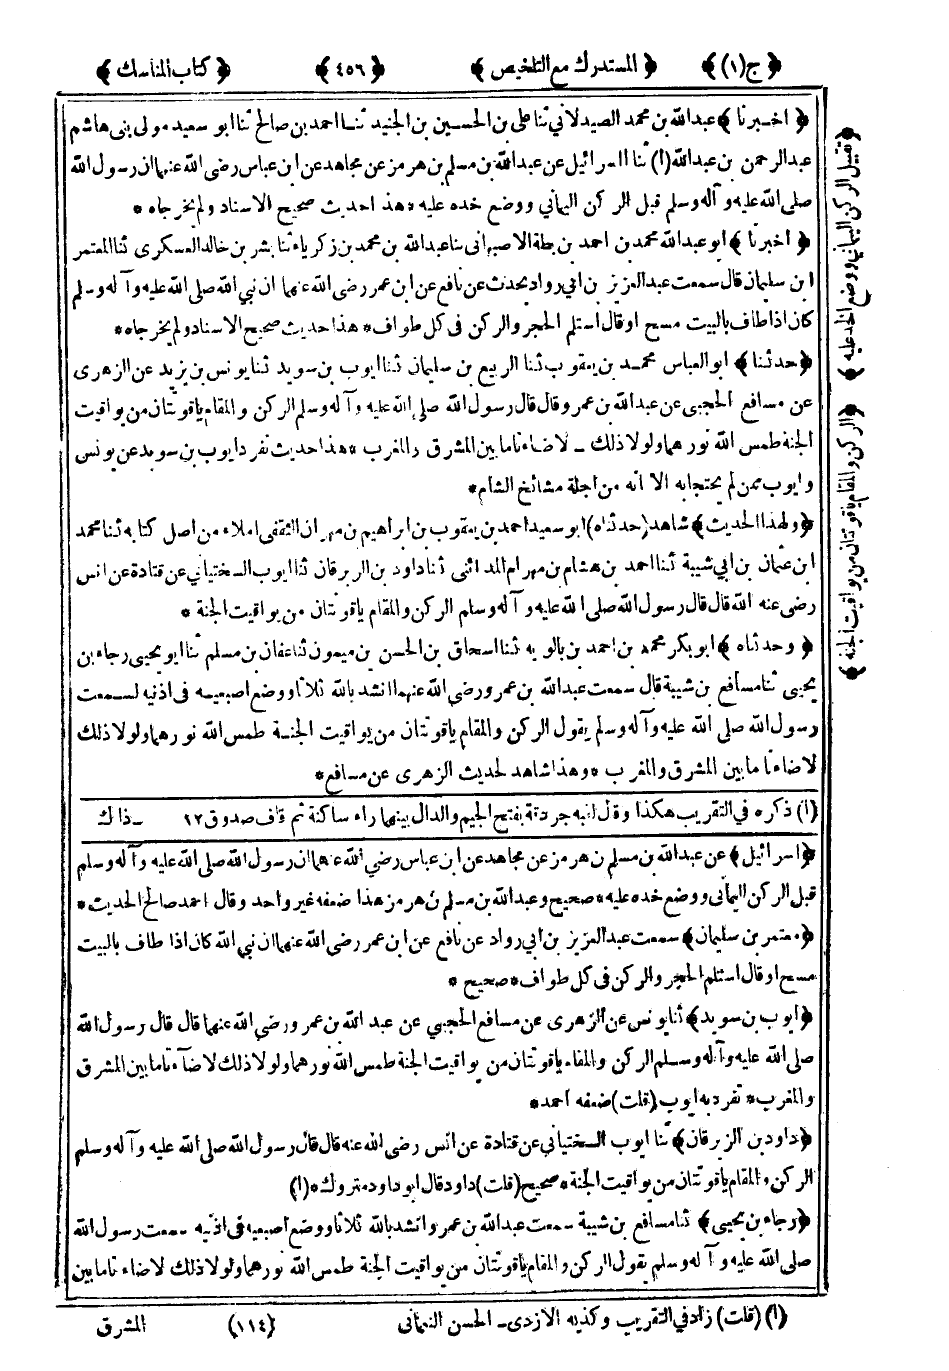 ﴿ج(١)﴾ ﴿المستدرك مع التلخيص﴾ ﴿٤٥٦﴾ ﴿كتاب المناسك﴾
﴿اخبرنا﴾ عبدالله بن محمد الصيدلاني ثنا علي بن الحسين بن الجنيد ثنا احمد بن صالح ثنا ابو سعيد مولى بنى هاشم
عبد الرحمن بن عبدالله(١) ثنا اسرائيل عن عبدالله بن مسلم بن هرمز عن مجاهد عن ابن عباس رضى الله عنهما ان رسول الله
صلى الله عليه وآله وسلم قبل الركن اليماني ووضع خده عليه * هذا حديث صحيح الاسناد ولم يخرجاه *
﴿اخبرنا﴾ ابو عبدالله محمد بن احمد بن بطة الاصبهانى ثنا عبدالله بن محمد بن زكرياء ثنا بشر بن خالد العسكرى ثنا المعتمر
ابن سليمان قال سمعت عبد العزيز بن ابي رواد يحدث عن نافع عن ابن عمر رضى الله عنهما ان نبي الله صلى الله عليه وآله وسلم
كان اذا طاف بالبيت مسح او قال استلم الحجر والركن فى كل طواف * هذا حديث صحيح الاسناد ولم يخرجاه *
﴿حدثنا﴾ ابو العباس محمد بن يعقوب ثنا الربيع بن سليمان ثنا ايوب بن سويد ثنا يونس بن يزيد عن الزهرى
عن مسافع الحجبى عن عبدالله بن عمر و قال قال رسول الله صلى الله عليه وآله وسلم الركن والمقام ياقوتتان من يواقيت
الجنة طمس الله نورهما ولولا ذلك ـ لاضاءتا ما بين المشرق والمغرب * هذا حديث تفرد ايوب بن سويد عن يونس
وايوب ممن لم يحتجا به الا انه من اجلة مشائخ الشام *
﴿ولهذا الحديث﴾ شاهد (حدثناه) ابو سعيد احمد بن يعقوب بن ابراهيم بن مهران الثقفى املاء من اصل كتابه ثنا محمد
ابن عثمان بن ابي شيبة ثنا احمد بن هشام بن بهرام المدائنى ثنا داود بن الزبرقان ثنا ايوب السختياني عن قتادة عن انس
رضى عنه الله قال قال رسول الله صلى الله عليه وآله وسلم الركن والمقام ياقوتتان من يواقيت الجنة *
﴿وحدثناه﴾ ابو بكر محمد بن احمد بن بالويه ثنا اسحاق بن الحسن بن ميمون ثنا عفان بن مسلم ثنا ابو يحيى رجاء بن
يحيى ثنا مسافع بن شيبة قال سمعت عبدالله بن عمر و رضى الله عنهما انشد بالله ثلاثا ووضع اصبعيه فى اذنيه لسمعت
رسول الله صلى الله عليه وآله وسلم يقول الركن والمقام ياقوتتان من يواقيت الجنة طمس الله نورهما ولولا ذلك
لاضاءتا ما بين المشرق والمغرب * وهذا شاهد لحديث الزهرى عن مسافع *
(١) ذكره في التقريب هكذا وقال لقبه جردقة بفتح الجيم والدال بينهما راء ساكنة ثم قاف صدوق ١٢ ـ ذاك
﴿اسرائيل﴾ عن عبدالله بن مسلم بن هرمز عن مجاهد عن ابن عباس رضي الله عنهما ان رسول الله صلى الله عليه وآله وسلم
قبل الركن اليمانى ووضع خده عليه * صحيح وعبدالله بن مسلم بن هرمز هذا ضعفه غير واحد وقال احمد صالح الحديث *
﴿معتمر بن سليمان﴾ سمعت عبد العزيز بن ابي رواد عن نافع عن ابن عمر رضى الله عنهما ان نبي الله كان اذا طاف بالبيت
مسح او قال استلم الحجر والركن فى كل طواف * صحيح *
﴿ايوب بن سويد﴾ ثنا يونس عن الزهرى عن مسافع الحجبي عن عبد الله بن عمر و رضى الله عنهما قال قال رسول الله
صلى الله عليه وآله وسلم الركن والمقام ياقوتتان من يواقيت الجنة طمس الله نورهما ولولا ذلك لاضآءتا ما بين المشرق
والمغرب * تفرد به ايوب (قلت) ضعفه احمد *
﴿داود بن الزبرقان﴾ ثنا ايوب السختياني عن قتادة عن انس رضى الله عنه قال قال رسول الله صلى الله عليه وآله وسلم
الركن والمقام ياقوتتان من يواقيت الجنة * صحيح (قلت) داود قال ابو داود متروك * (١)
﴿رجاء بن يحيى﴾ ثنا مسافع بن شيبة سمعت عبدالله بن عمر و انشد بالله ثلاثا ووضع اصبعيه فى اذنيه سمعت رسول الله
صلى الله عليه وآله وسلم يقول الركن والمقام ياقوتتان من يواقيت الجنة طمس الله نورهما ولولا ذلك لاضاءتا ما بين
(١) (قلت) زاد في التقريب وكذبه الازدى ـ الحسن النعمانى (١١٤) المشرق
﴿تقبيل الركن اليماني ووضع الخد عليه﴾
﴿الركن والمقام ياقوتتان من يواقيت الجنة﴾